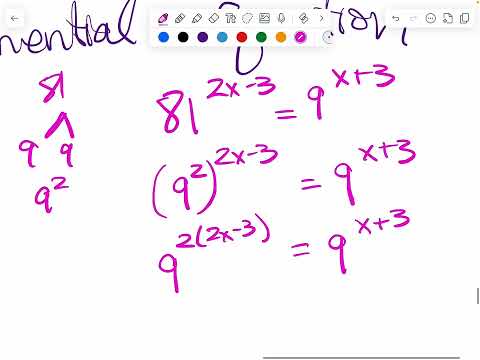 81
9 9
9²
81^(2x-3) = 9^(x+3)
(9²)^(2x-3) = 9^(x+3)
9^(2(2x-3)) = 9^(x+3)